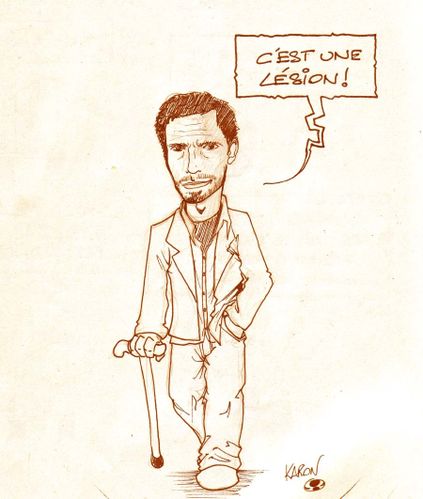 C'EST UNE
LÉSION!
KARON